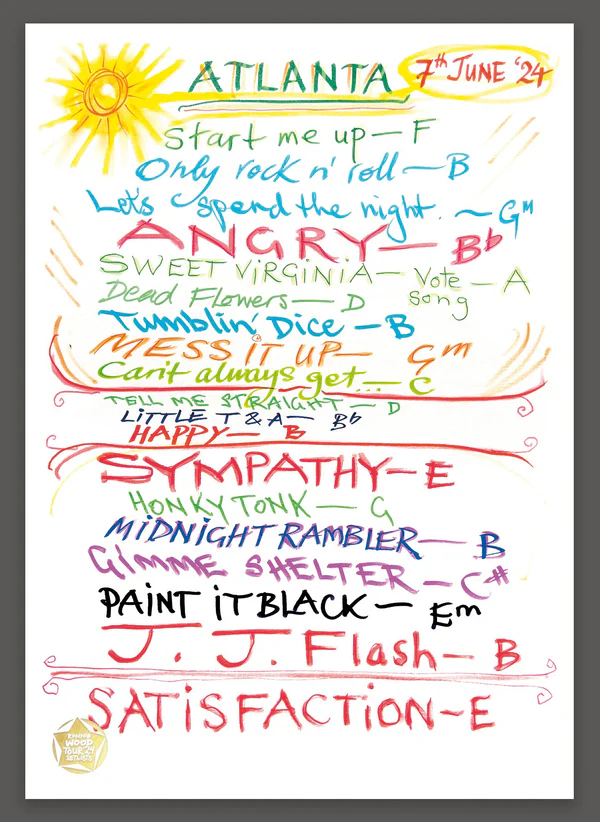 ATLANTA 7th JUNE '24
Start me up — F
Only rock n' roll — B
Let's spend the night. ~ Gm
ANGRY — Bb
SWEET VIRGINIA — Vote song — A
Dead Flowers — D
Tumblin' Dice — B
MESS IT UP — Gm
Can't always get... — C
TELL ME STRAIGHT — D
LITTLE T & A — Bb
HAPPY — B
SYMPATHY — E
HONKY TONK — G
MIDNIGHT RAMBLER — B
GIMME SHELTER — C#
PAINT IT BLACK — Em
J. J. Flash — B
SATISFACTION ~ E
RONNIE
WOOD
TOUR '24
SETLISTS